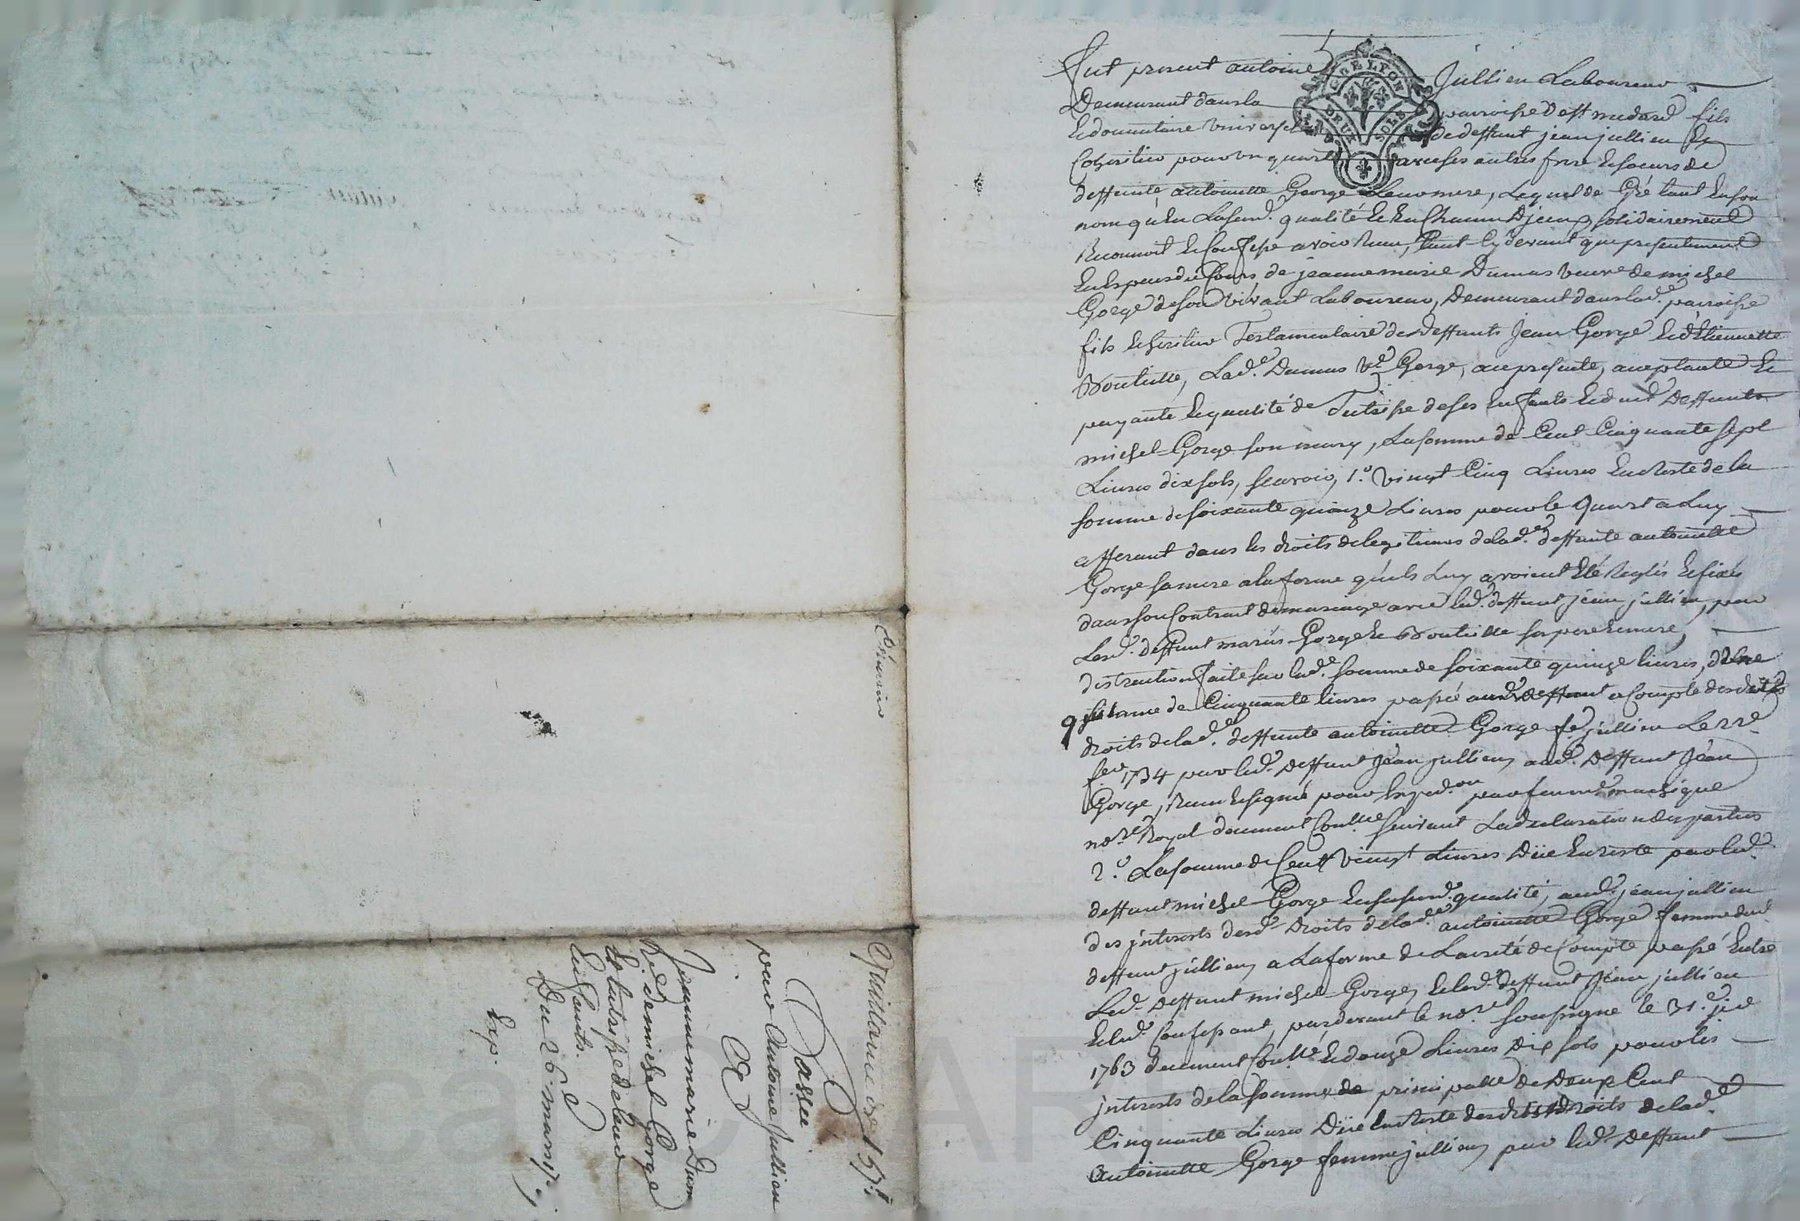 Fut present antoine Jullien Laboureur
Demeurant dans la parroisse de st medard fils
Et donnataire universel de deffunt jean jullien Et
Cohéritier pour un quart avec ses autres frere Et soeurs de
deffunte antoinette Gorge sa mere, Lequel de Gré tant En son
nom qu'En Lasusd. qualité Et En Chacun d'jeux solidairement
Reconnoit Et Confesse avoir Receu, tant Cy devant que presentement
En Especes du Cours de jeanne marie Dumas veuve de michel
Gorge de son vivant Laboureur, Demeurant dans lad.e parroisse
fils Et héritier Testamentaire des deffunts Jean Gorge Et d'Etiennette
Bouteille, Lad.e Dumas V.e Gorge, acy presente, acceptante Et
payante En qualité de Tutrisse de ses Enfants Et dud. Deffunt
michel Gorge son mary, La somme de Cent Cinquante sept
Livres dix sols, scavoir, 1.° Vingt Cinq Livres En Reste de la
somme de soixante quinze Livres pour le quart a Luy
afferant dans les droits de legitimes de lad.e deffunte antoinette
Gorge sa mere a la forme qu'ils Luy avoient Eté Reglés Et fixés
dans son Contrant de mariage avec led. deffunt jean jullien, par
Lesd. deffunt mariés Gorge Et Bouteille ses pere Et mere,
distraction faite sur lad.e somme de soixante quinze livres, d'Une
quittance de Cinquante livres passé aud. deffunt a Compte desdits
droits de lad.e deffunte antoinette Gorge fe jullien Le 22e
fev. 1734 par led. Deffunt Jean jullien, aud. Deffunt Jean
Gorge, Receu Et signé pour Expéd.on par
no.re Royal deument Conllé suivant La declaration des parties
2.° La somme de Cent Vingt Livres Düe En reste par led.
deffunt michel Gorge En sa susd.e qualité, aud. jean jullien
des jnterests desd. droits de lad.e antoinette Gorge femme dud.
deffunt jullien, a La forme de L'arreté de Compte passé Entre
Led. Deffunt michel Gorge, Et led. deffunt Jean jullien
Et led. Confessant, pardevant le no.re soussigné le 31.e
1763 deument Conllé Et douze Livres Dix sols pour les
jnterests de la somme de principalle de Deux Cent
Cinquante Livres Düe En Reste desdits droits de lad.e
Antoinette Gorge femme jullien, par led. Deffunt
Quittance de 157.#
Passée
par Antoine Jullien
A
Jeanne marie Dumas
V.e de michel Gorge
Et tutrisse de leurs
Enfants.
Du 26.e mars 17
Exp.